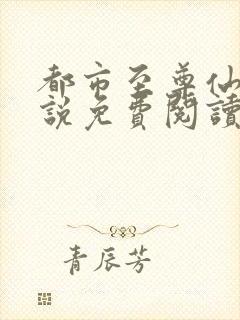 都市至尊仙
說免費閱讀
青辰芳